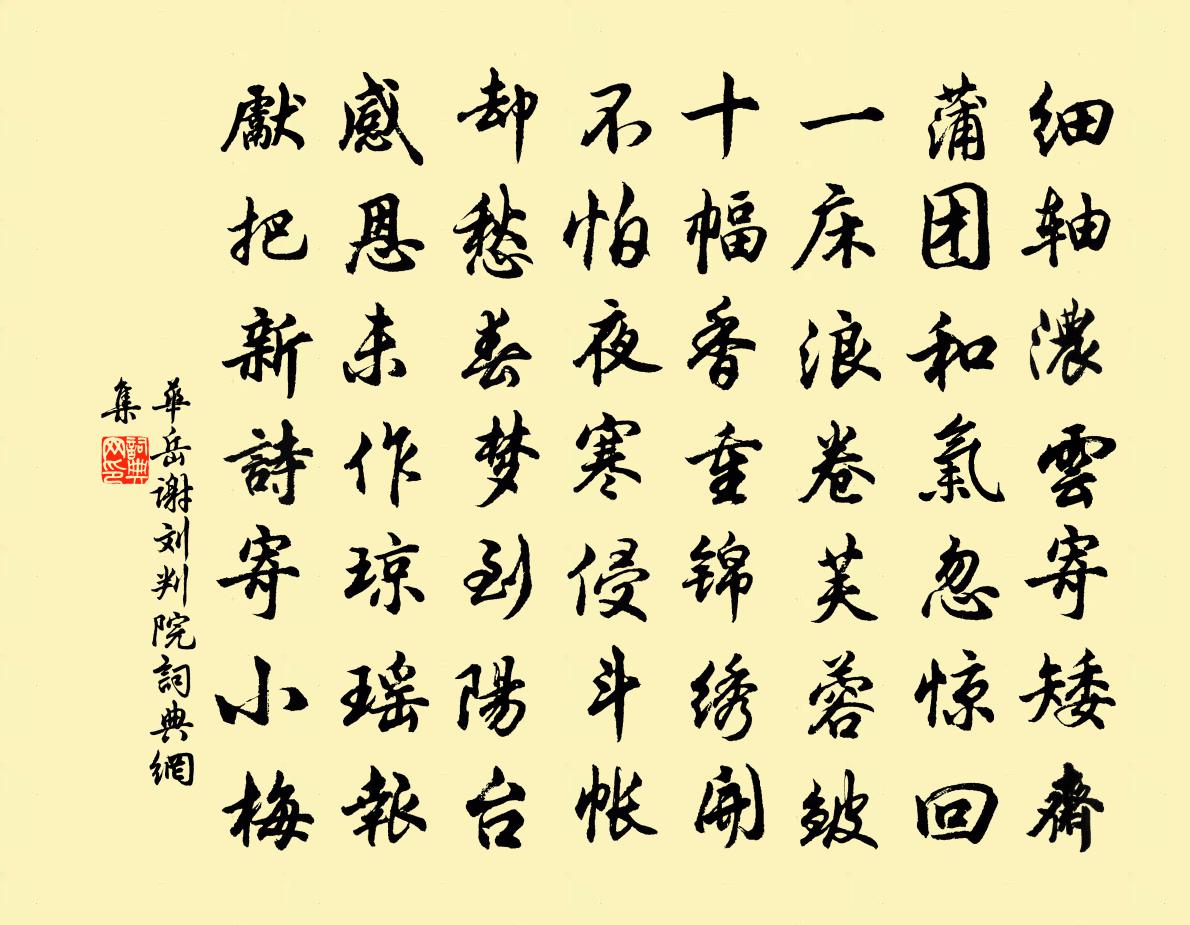 细轴濃雲寄矮齋
蒲团和氣忽惊回
一床浪卷芙蓉皱
十幅香重锦绣開
不怕夜寒侵斗帐
却愁春梦到陽台
感恩未作琼瑶報
獻把新詩寄小梅
華岳谢刘判院詞典網
集
詞典
网印